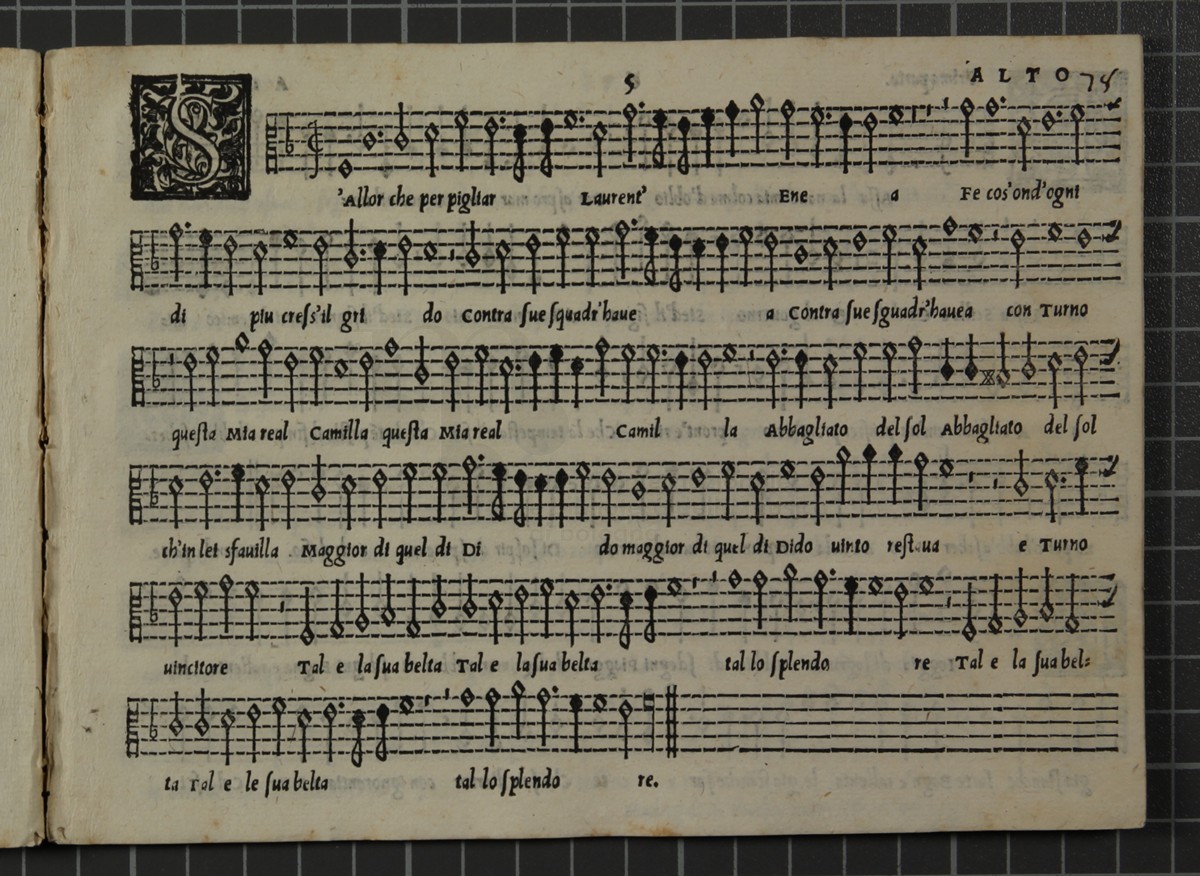 5 ALTO 78
S'Allor che per pigliar Laurent' Ene a Fe cos'ond'ogni
di piu cresſ'il gri do Contra sue squadr'haue a Contra sue sguadr'hauea con Turno
questa Mia real Camilla questa Mia real Camil la Abbagliato del sol Abbagliato del sol
ch'in lei sfauilla Maggior di quel di Di do maggior di quel di Dido uinto rest.ua e Turno
uincitore Tal e la sua belta Tal e la sua belta tal lo splendo re Tal e la sua bel:
ta Tal e le sua belta tal lo splendo re.